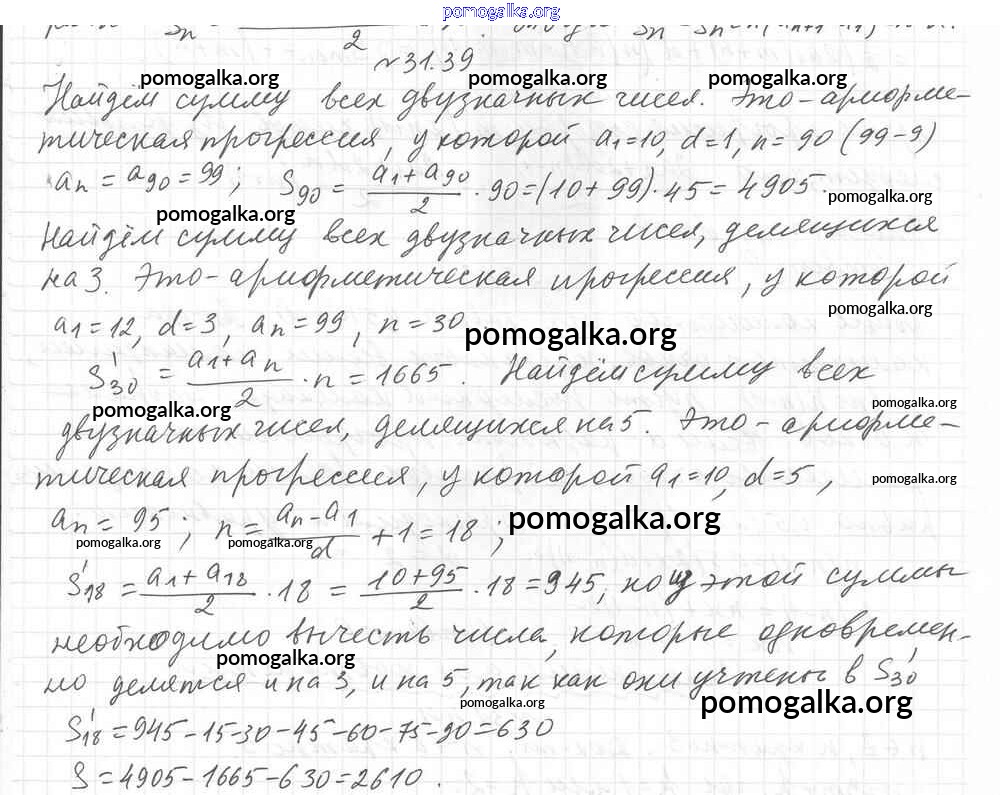 pomogalka.org
Sn 2
№31.39
pomogalka.org pomogalka.org pomogalka.org
Найдём сумму всех двузначных чисел. Это - арифме-
тическая прогрессия, у которой a1=10, d=1, n=90 (99-9)
an = a90 = 99; S90 = (a1+a90)/2 · 90 = (10+99)·45 = 4905
pomogalka.org pomogalka.org
Найдём сумму всех двузначных чисел, делящихся
на 3. Это - арифметическая прогрессия, у которой
pomogalka.org
a1=12, d=3, an=99, n=30
pomogalka.org
S'30 = (a1+an)/2 · n = 1665. Найдём сумму всех
pomogalka.org pomogalka.org
двузначных чисел, делящихся на 5. Это - арифме-
тическая прогрессия, у которой a1=10, d=5,
pomogalka.org
an = 95; n = (an-a1)/d + 1 = 18;
pomogalka.org
pomogalka.org pomogalka.org
S'18 = (a1+a18)/2 · 18 = (10+95)/2 · 18 = 945, но из этой суммы
необходимо вычесть числа, которые одновремен-
pomogalka.org
но делятся и на 3, и на 5, так как они учтены в S'30
pomogalka.org pomogalka.org
S'18 = 945-15-30-45-60-75-90=630
S = 4905-1665-630=2610.